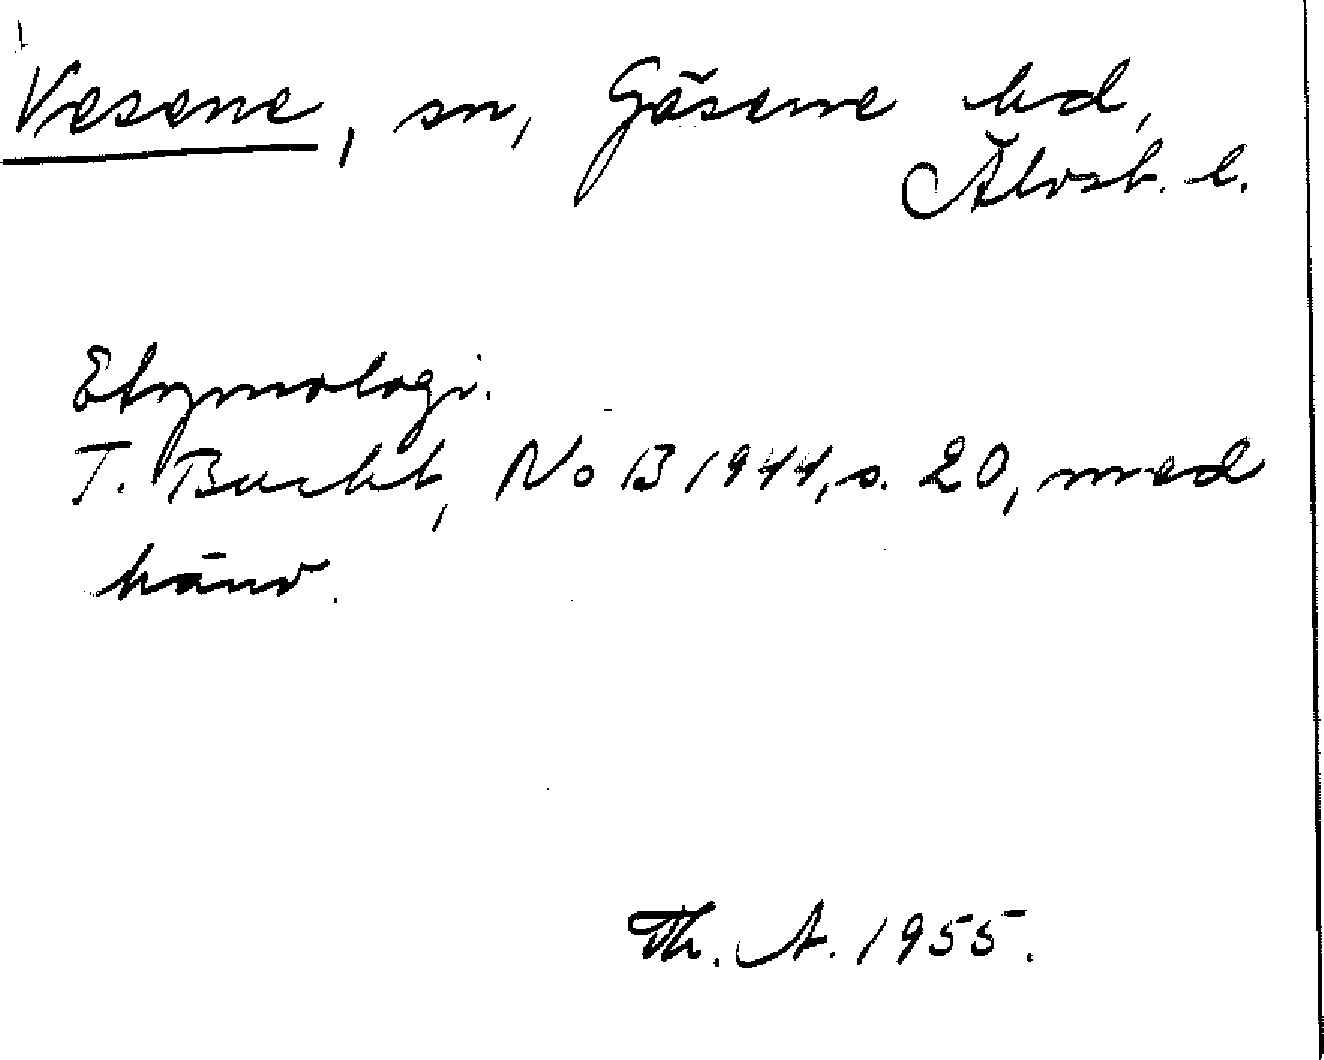 Vesene, sn, Gäsene hd,
Älvsb. l.
Etymologi.
T. Bucht, NoB 1944, s. 20, med
hänv.
Th. A. 1955.